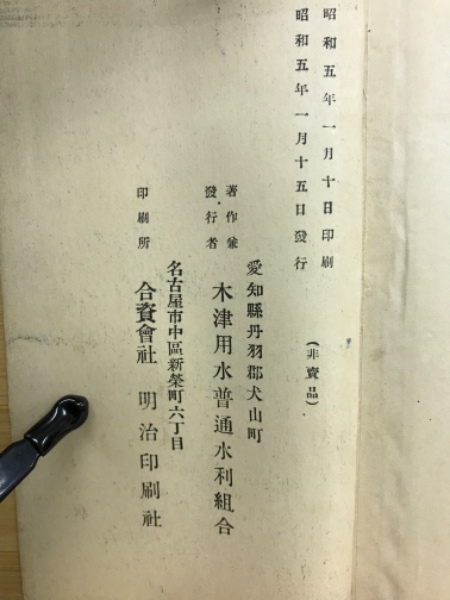 昭和五年一月十日印刷
昭和五年一月十五日發行
(非賣品)
愛知縣丹羽郡犬山町
著作兼
發行者
木津用水普通水利組合
名古屋市中區新榮町六丁目
印刷所
合資會社 明治印刷社